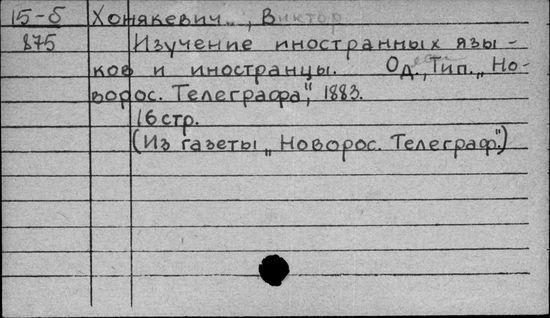 15-б Хонякевич.., Виктор
875 Изучение иностранных язы-
ков и иностранцы. Од., Тип. „Но-
ворос. Телеграфа", 1883.
16 стр.
(Из газеты „Новорос. Телеграф".)